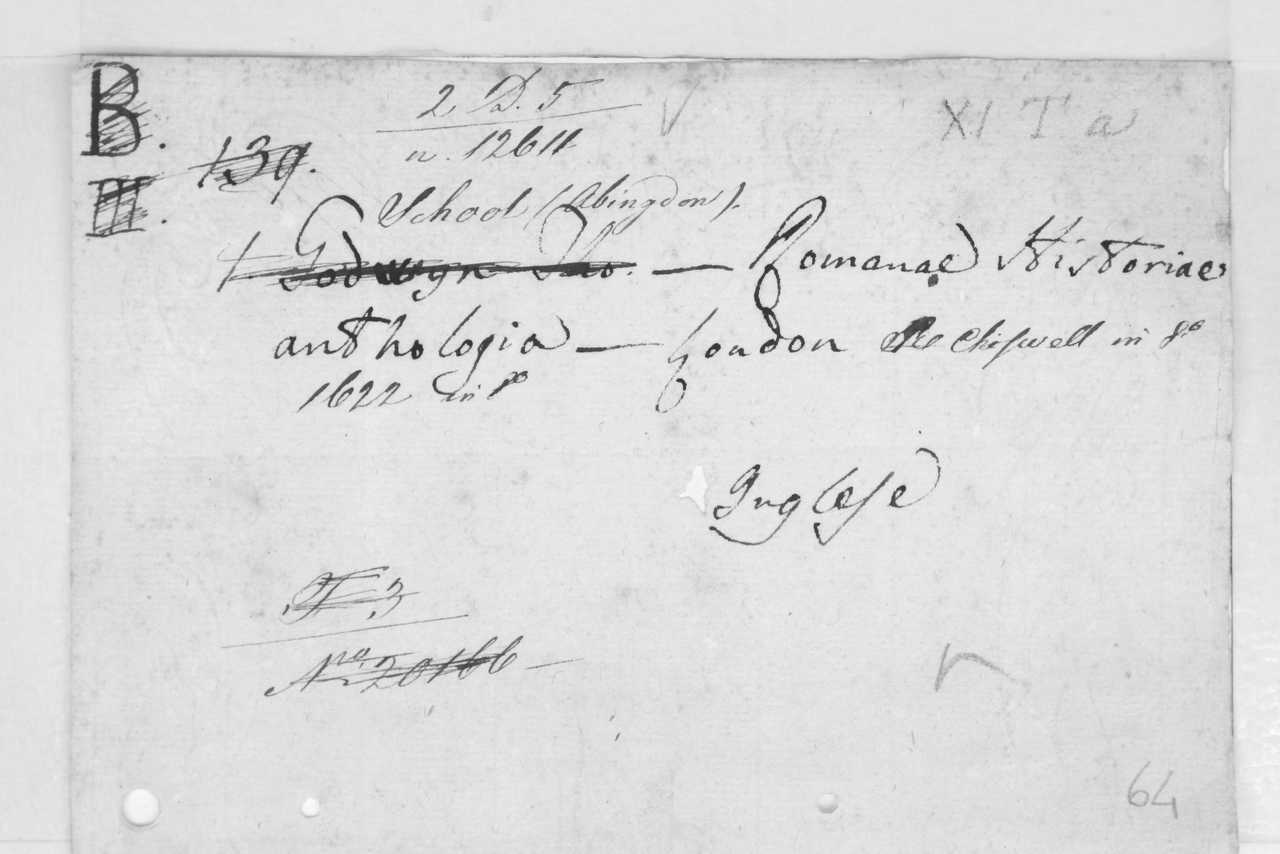 B.
III.
139.
2. D. 5
n. 12611
XI T a
School (Abingdon).
Godwyn Tho. — Romanae Historiae
anthologia — London Chiswell in 8º
1622 in 8º
Inglese
T. 3
Nro. 20166
64